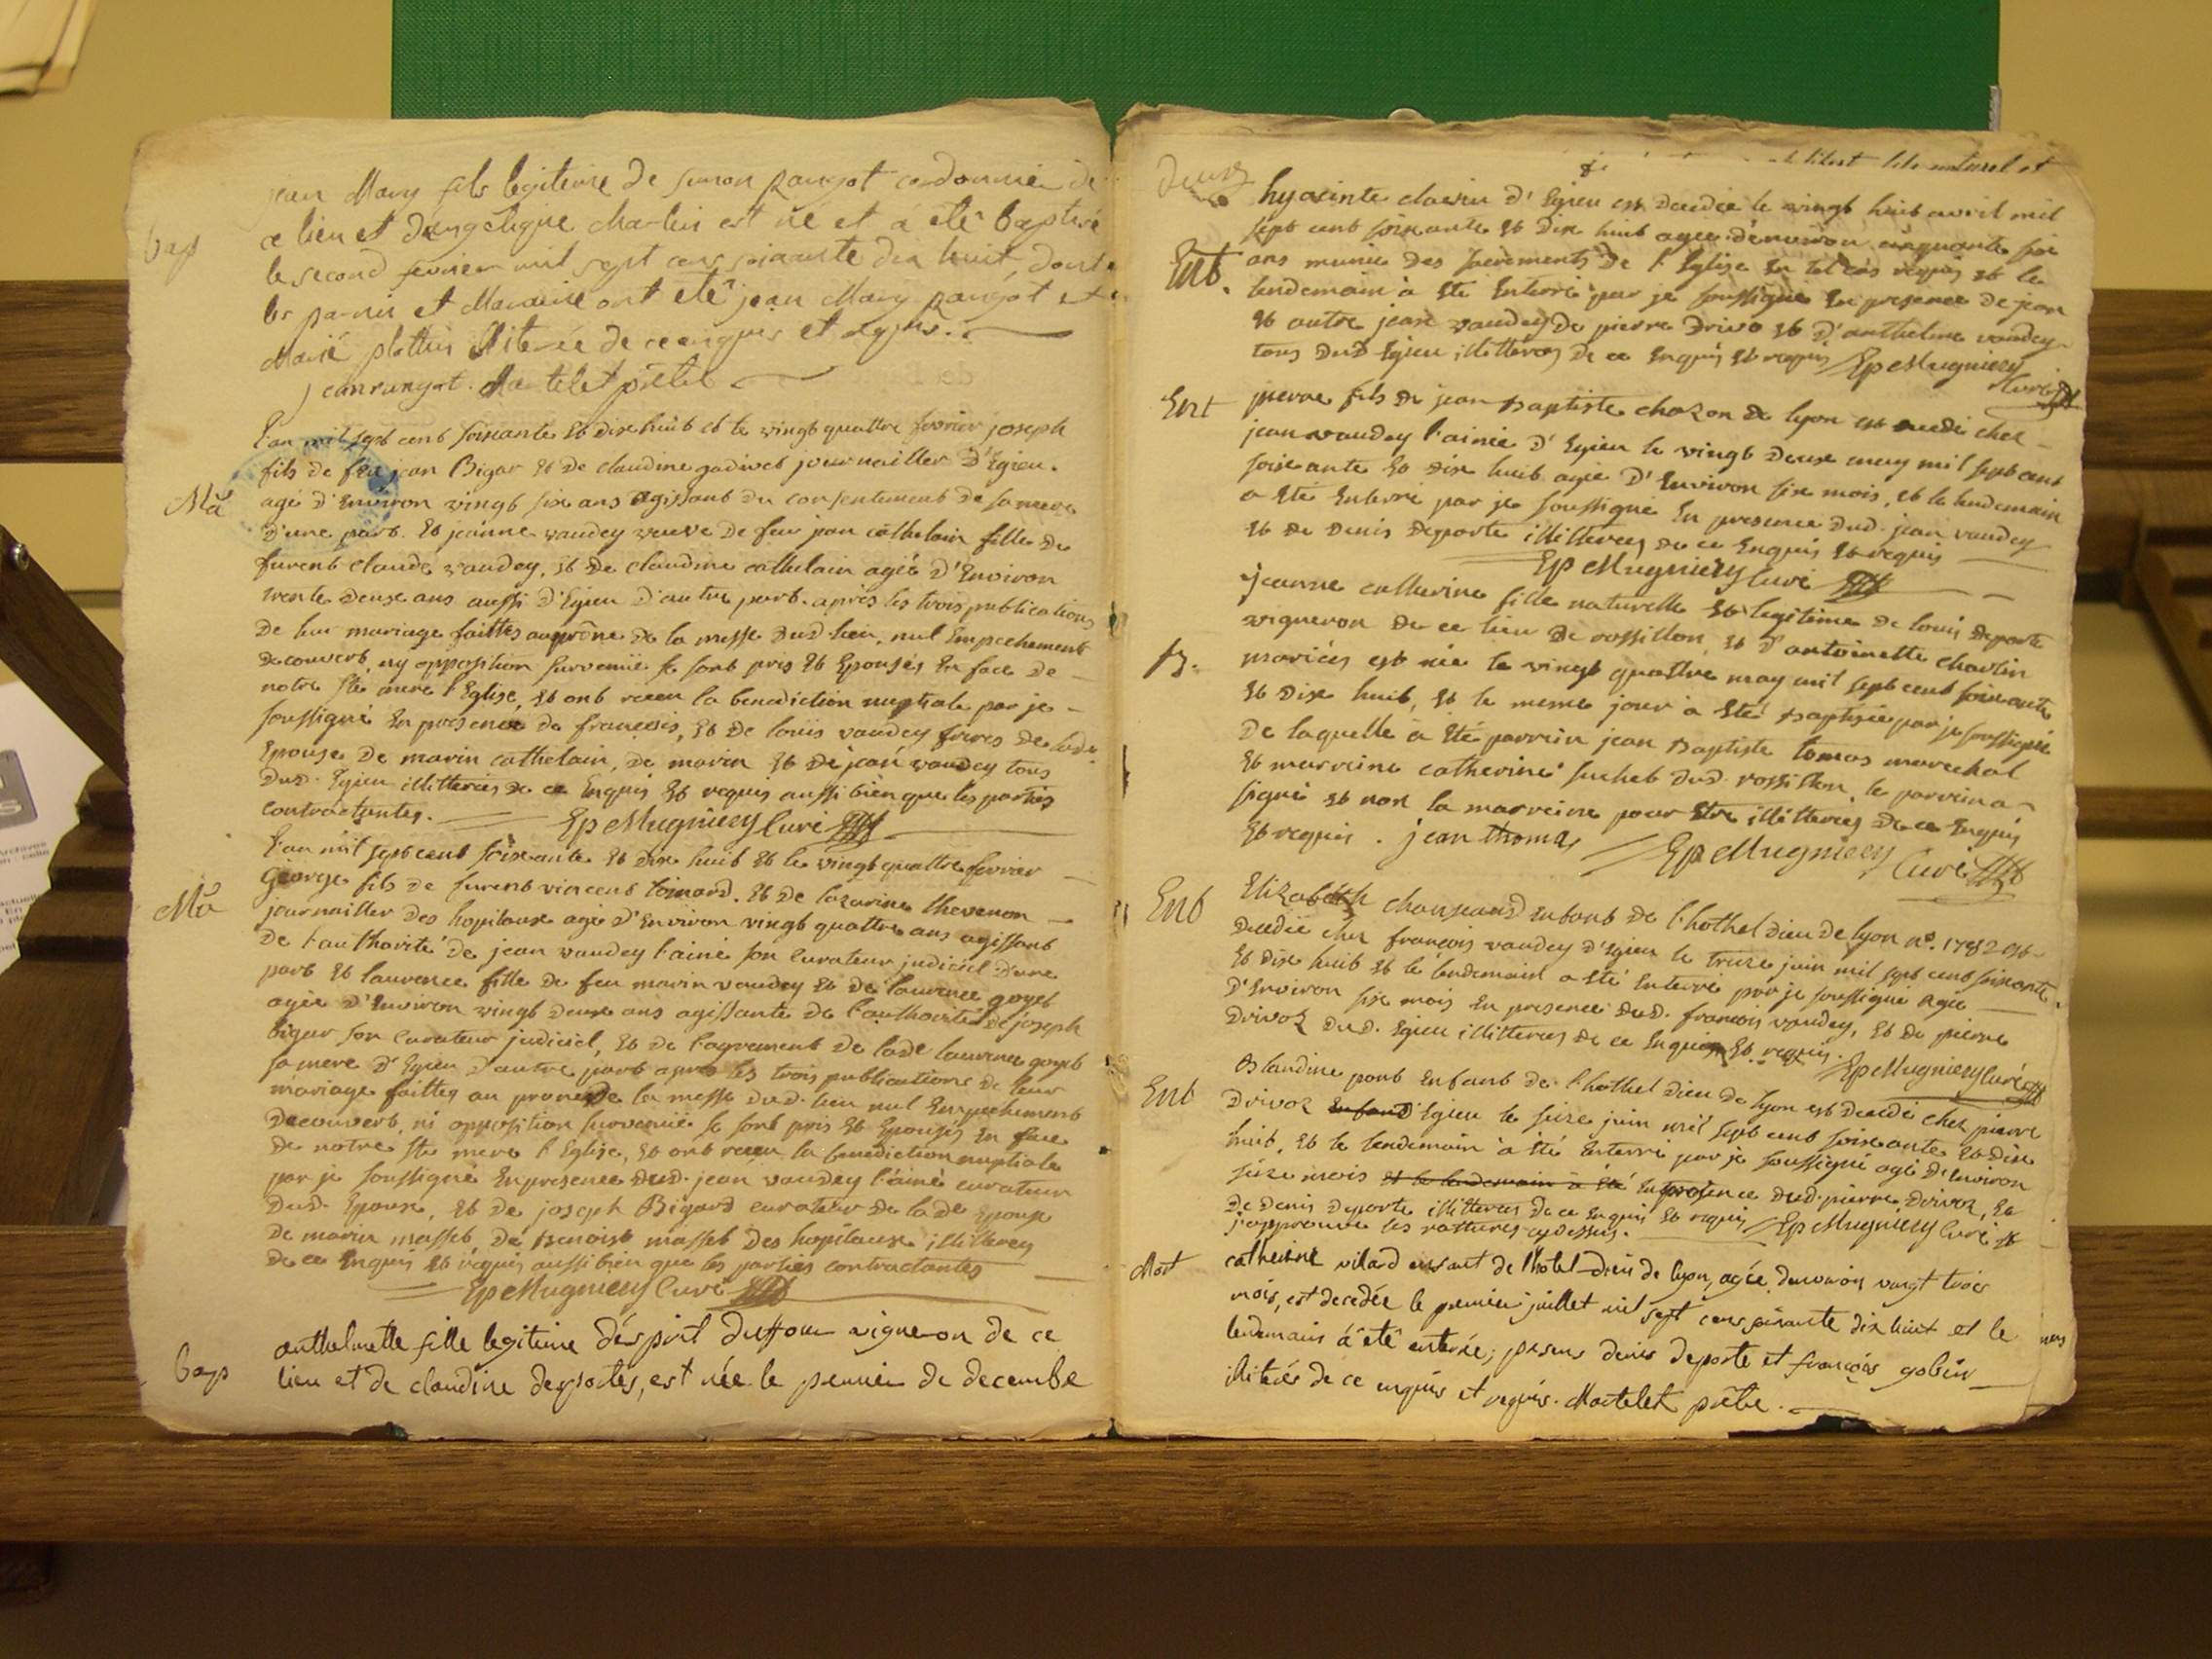 bap
jean Mary fils legitime de simon pangot cordonnier de
ce lieu et d'angelique Martin est né et a été baptisé
le second fevrier mil sept cens soixante dix huit, dont
les parein et Maraine ont été jean Mary pangot et
Marie plottin illiterée de ce enquis et requis.
jean pangot. Martelet prêtre
Ma
L'an mil sept cent soixante et dix huit et le vingt quattre fevrier joseph
fils de feu jean Bigar et de claudine gadivet journailler d'Egieu.
agé d'Environ vingt six ans agissant du consentement de sa mere
d'une part. Et jeanne vaudey veuve de feu jean cathelain fille de
furent claude vaudey, et de claudine cathelain agée d'Environ
trente deux ans aussi d'Egieu d'autre part. après les trois publications
de leur mariage faittes au prône de la messe dud. lieu, nul Empechement
decouvert, ny opposition survenüe se sont pris et Epousés En face de
notre Ste mere l'Eglise, et ont receu la benediction nuptiale par je
soussigné En presence de françois, et de loüis vaudey freres de lade
Epouse de marin cathelain, de marin et de jean vaudey tous
dud. Egieu illitterés de ce Enquis et requis aussi bien que les parties
contractantes. Ep Mugniery Curé
Ma
L'an mil sept cent soixante et dix huit et le vingt quattre fevrier
George fils de furent vincent Coinard. et de lazarine thevenon
journailler des hopitaux agé d'Environ vingt quattre ans agissant
de l'authorité de jean vaudey l'ainé son Curateur judiciel d'une
part et laurence fille de feu marin vaudey et de laurence goyet
agée d'Environ vingt deux ans agissante de l'authorité de joseph
bigar son Curateur judiciel, et de l'agrement de lade laurence goyet
sa mere d'Egieu d'autre part après les trois publications de leur
mariage faittes au prone de la messe dud. lieu nul Empechement
decouvert, ni opposition survenüe se sont pris et Epousés En face
de notre Ste mere l'Eglise, et ont receu la benediction nuptiale
par je soussigné En presence dud. jean vaudey l'ainé curateur
dud. Epoux, et de joseph Bigard curateur de lade Epouse
de marin masset, de Benoist masset des hopitaux illitterés
de ce Enquis et requis aussi bien que les parties contractantes
Ep Mugniery Curé
bap
anthelmette fille legitime d'esprit duffour vigneron de ce
lieu et de claudine desportes, est née le premier de decembre
deux
naturel et
Ent.
hyacinte clavin d'Egieu est decedée le vingt huit avril mil
sept cent soixante et dix huit agée d'environ cinquante six
ans munie des sacrements de l'Eglise En tel cas requis et le
lendemain à été Enterré par je soussigné En presence de jean
et autre jean vaudey de pierre Drivo et d'anthelme vaudey
tous dud Egieu illitterés de ce Enquis et requis Ep Mugniery
Curé
Ent
pierre fils de jean Baptiste chazon de lyon est decedé chez
jean vaudey l'ainée d'Egieu le vingt deux may mil sept cent
soixante et dix huit agé d'Environ six mois, et le lendemain
a été Enterré par je soussigné En presence dud. jean vaudey
et de Denis Deporte illitterés de ce Enquis et requis
Ep Mugniery Curé
B.
jeanne catherine fille naturelle et legitime de louis deporte
vigneron de ce lieu de rossillon, et d'antoinette charlin
mariés est née le vingt quattre may mil sept cent soixante
et dix huit, et le meme jour à été Baptisée par je soussigné
de laquelle a été parrin jean Baptiste tomas marechal
et marreine catherine suchet dud. rossillon, le parrin a
signé et non la marreine pour Etre illitterée de ce Enquis
et requis. jean thomas Ep Mugniery Curé
Ent
Elizabeth chanjeand Enfant de l'hothel dieu de lyon no. 1782 est
decedée chez françois vaudey d'Egieu le treize juin mil sept cent soixante
et dix huit et le lendemain a été Enterré par je soussigné agée
d'Environ six mois En presence dud. françois vaudey, et de pierre
Drivoz dud. Egieu illitterés de ce Enquis et requis. Ep Mugniery Curé
Ent
Blandine pont Enfant de l'hothel dieu de lyon est decedé chez pierre
Drivoz Enfant d'Egieu le seize juin mil sept cent soixante et dix
huit, et le lendemain à été Enterré par je soussigné agé d'Environ
seize mois et le lendemain à été En presence dud. pierre Drivoz, et
de denis deporte illitterés de ce Enquis et requis Ep Mugniery Curé
j'approuve les rattures cy dessus.
Mort
catherine vilard enfant de l'hotel-dieu de lyon, agée d'environ vingt trois
mois, est decedée le premier juillet mil sept cens soixante dix huit et le
lendemain à été enterrée; presens denis deporte et françois gobin
illiterés de ce enquis et requis. Martelet prêtre.